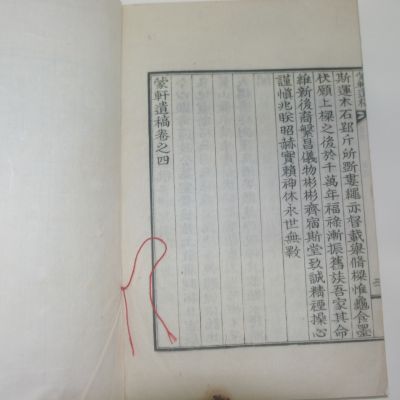 蒙軒遺稿
斯運木石郢斤所斲婁繩亦督載輿脩樑惟龜食墨
伏願上樑之後於千萬年福祿漸振舊法吾家其命
維新後裔繁昌儀物彬彬齊宿斯堂致誠精禋操心
謹愼兆朕昭赫實賴神休永世無斁
蒙軒遺稿卷之四